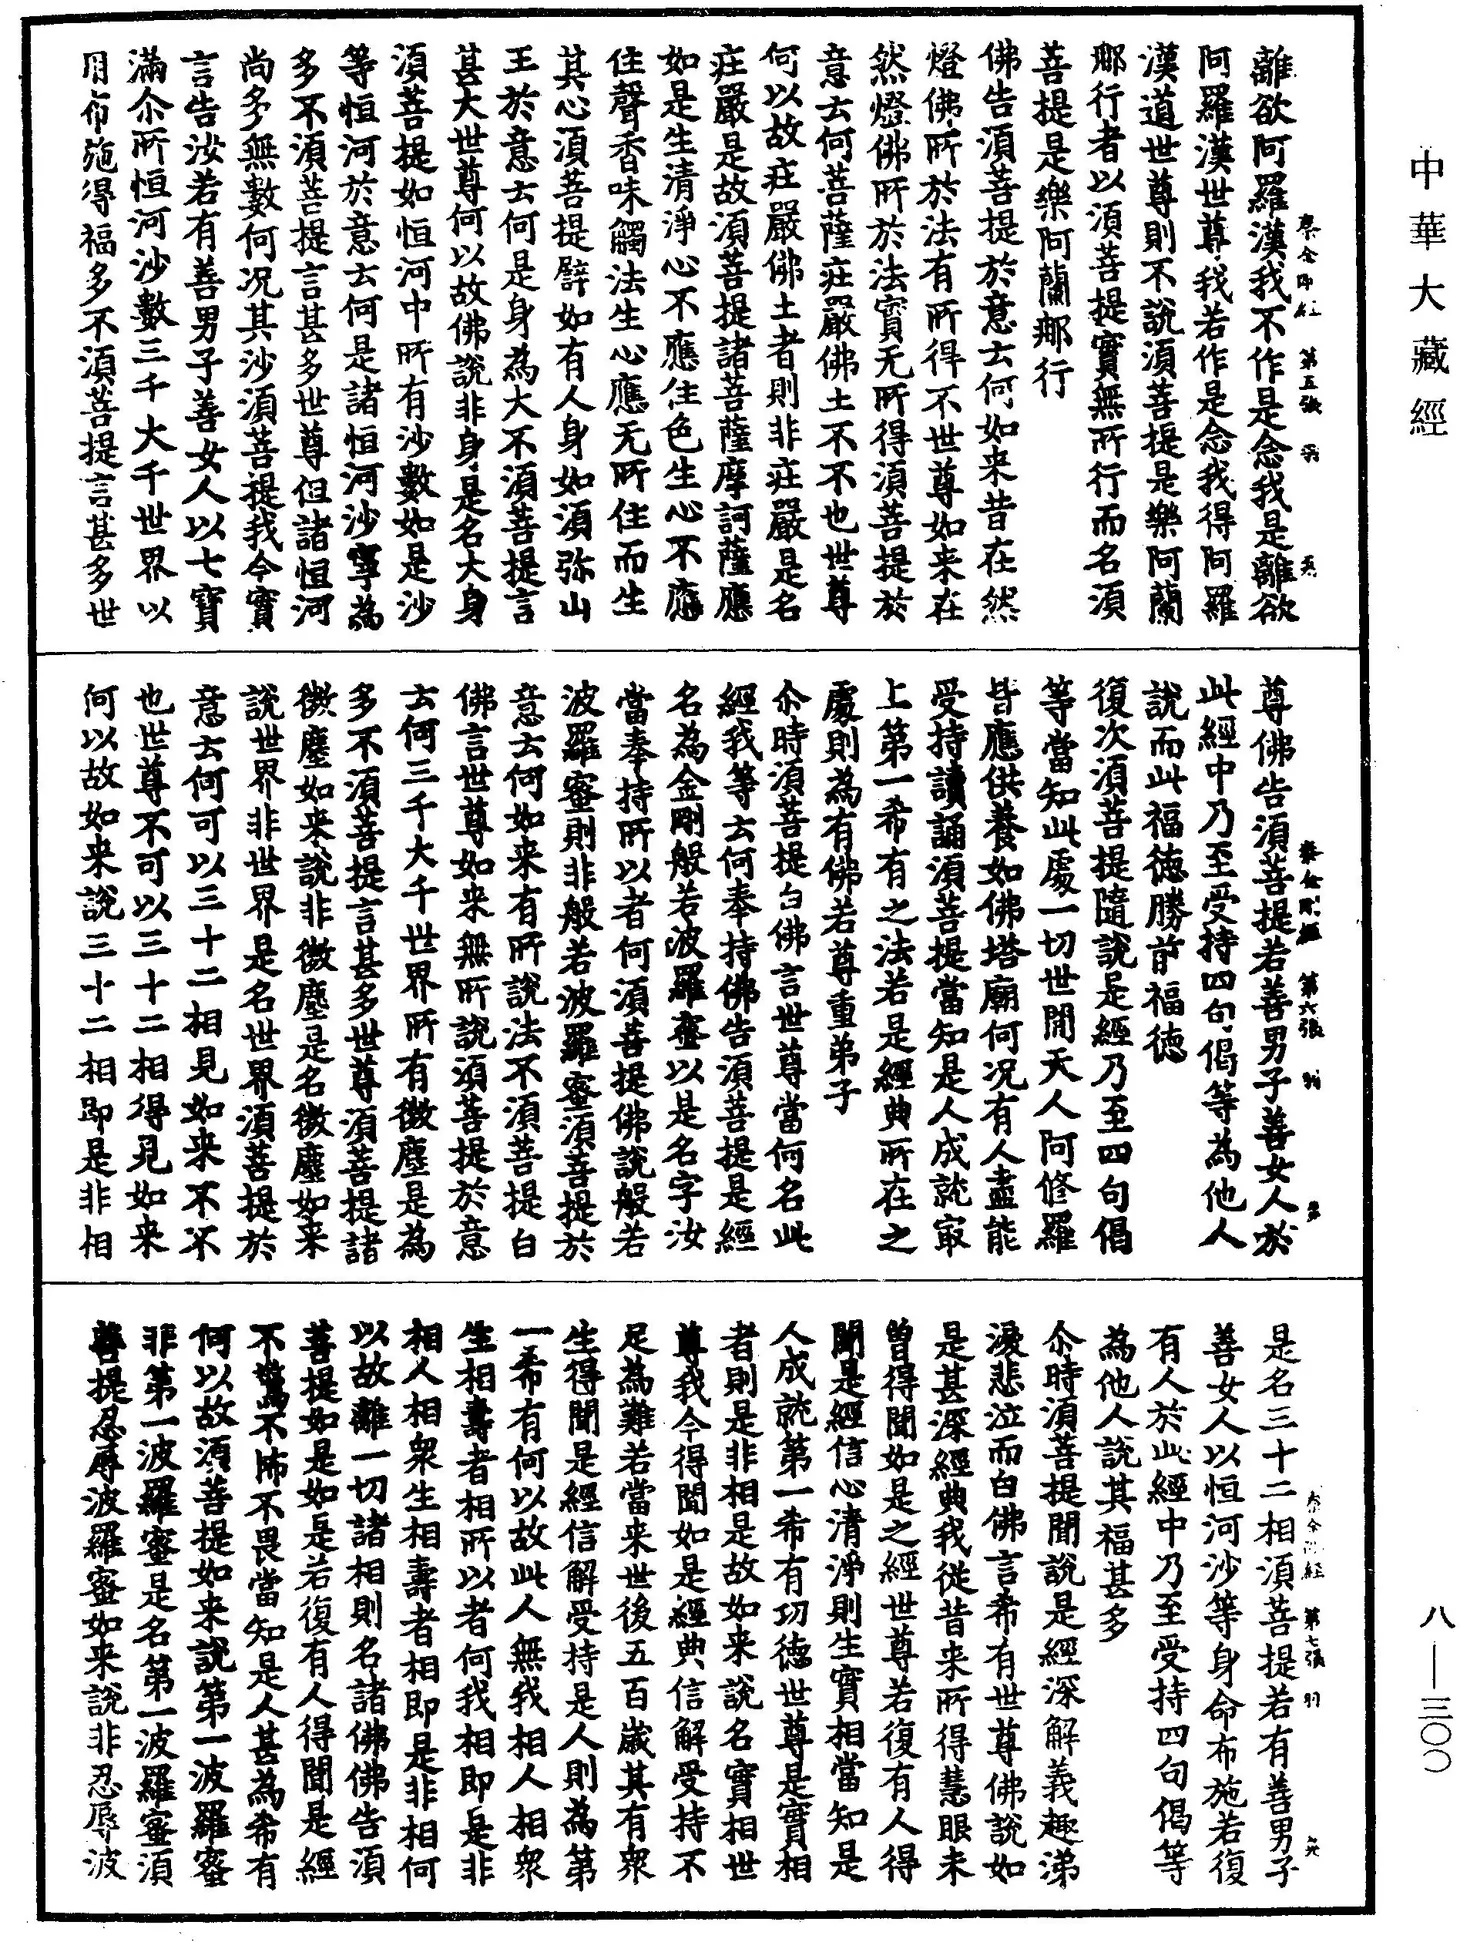 中華大藏經
秦金剛經 第五張
離欲阿羅漢我不作是念我是離欲
阿羅漢世尊我若作是念我得阿羅
漢道世尊則不說須菩提是樂阿蘭
那行者以須菩提實無所行而名須
菩提是樂阿蘭那行
佛告須菩提於意云何如来昔在然
燈佛所於法有所得不世尊如来在
然燈佛所於法實无所得須菩提於
意云何菩薩莊嚴佛土不不也世尊
何以故莊嚴佛土者則非莊嚴是名
莊嚴是故須菩提諸菩薩摩訶薩應
如是生清淨心不應住色生心不應
住聲香味觸法生心應无所住而生
其心須菩提譬如有人身如須弥山
王於意云何是身為大不須菩提言
甚大世尊何以故佛說非身是名大身
須菩提如恒河中所有沙數如是沙
等恒河於意云何是諸恒河沙寧為
多不須菩提言甚多世尊但諸恒河
尚多無數何况其沙須菩提我今實
言告汝若有善男子善女人以七寶
滿尒所恒河沙數三千大千世界以
用布施得福多不須菩提言甚多世
秦金剛經 第六張
尊佛告須菩提若善男子善女人於
此經中乃至受持四句偈等為他人
說而此福德勝前福德
復次須菩提隨說是經乃至四句偈
等當知此處一切世間天人阿修羅
皆應供養如佛塔廟何况有人盡能
受持讀誦須菩提當知是人成就㝡
上第一希有之法若是經典所在之
處則為有佛若尊重弟子
尒時須菩提白佛言世尊當何名此
經我等云何奉持佛告須菩提是經
名為金剛般若波羅蜜以是名字汝
當奉持所以者何須菩提佛說般若
波羅蜜則非般若波羅蜜須菩提於
意云何如来有所說法不須菩提白
佛言世尊如来無所說須菩提於意
云何三千大千世界所有微塵是為
多不須菩提言甚多世尊須菩提諸
微塵如来說非微塵是名微塵如来
說世界非世界是名世界須菩提於
意云何可以三十二相見如来不不
也世尊不可以三十二相得見如来
何以故如来說三十二相即是非相
秦金剛經 第七張
是名三十二相須菩提若有善男子
善女人以恒河沙等身命布施若復
有人於此經中乃至受持四句偈等
為他人說其福甚多
尒時須菩提聞說是經深解義趣涕
淚悲泣而白佛言希有世尊佛說如
是甚深經典我從昔来所得慧眼未
曾得聞如是之經世尊若復有人得
聞是經信心清淨則生實相當知是
人成就第一希有功德世尊是實相
者則是非相是故如来說名實相世
尊我今得聞如是經典信解受持不
足為難若當来世後五百歲其有衆
生得聞是經信解受持是人則為第
一希有何以故此人無我相人相衆
生相壽者相所以者何我相即是非
相人相衆生相壽者相即是非相何
以故離一切諸相則名諸佛佛告須
菩提如是如是若復有人得聞是經
不驚不怖不畏當知是人甚為希有
何以故須菩提如来說第一波羅蜜
非第一波羅蜜是名第一波羅蜜須
菩提忍辱波羅蜜如来說非忍辱波
八—三〇〇